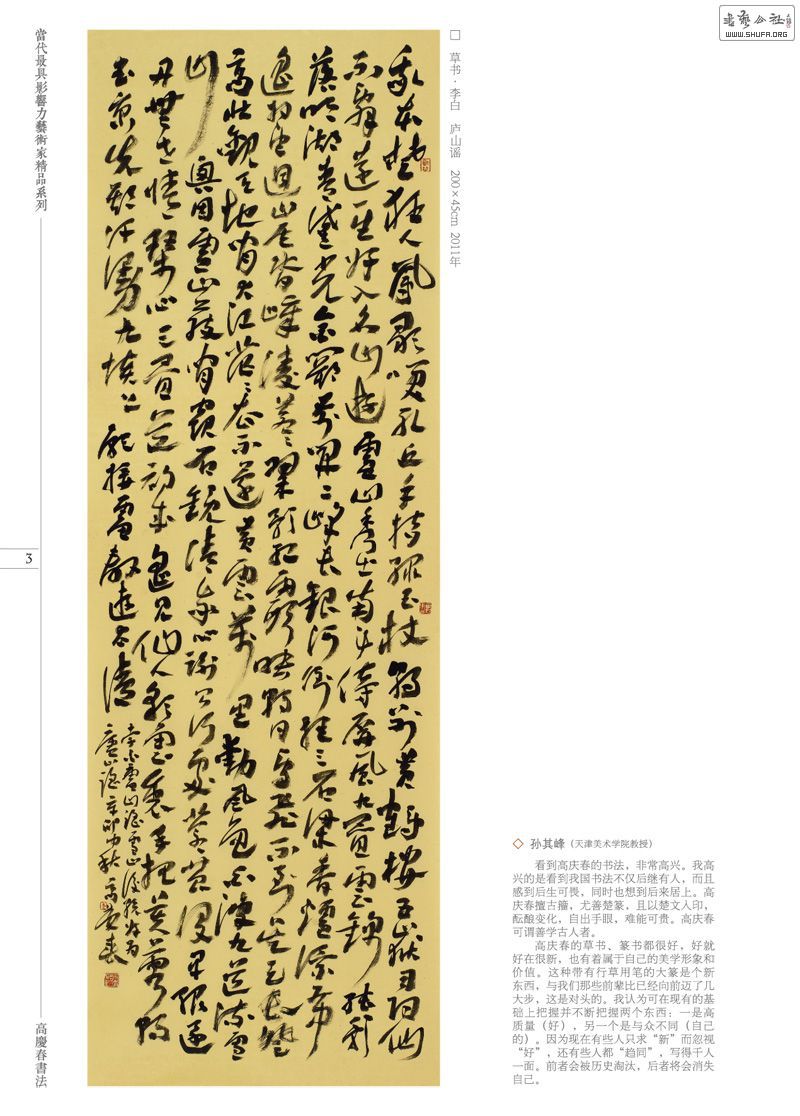 書藝公社
WWW.SHUFA.ORG
當代最具影響力藝術家精品系列
3
高慶春書法
□ 草书·李白 庐山谣 200×45cm 2011年
我本楚狂人鳳歌笑孔丘手持綠玉杖朝別黃鶴樓五嶽尋仙
不辭遠一生好入名山遊廬山秀出南斗傍屏風九疊雲錦張影
落明湖青黛光金闕前開二峰長銀河倒挂三石梁香爐瀑布
遙相望迴崖沓嶂凌蒼蒼翠影紅霞映朝日鳥飛不到吳天長登
高壯觀天地間大江茫茫去不還黃雲萬里動風色白波九道流雪
山興因廬山發閑窺石鏡清我心謝公行處蒼苔沒早服還
丹無世情琴心三疊道初成遙見仙人彩雲裏手把芙蓉朝
玉京先期汗漫九垓上願接盧敖遊太清
李白廬山謠
廬山謠辛卯中秋高慶春
◇ 孙其峰（天津美术学院教授）
看到高庆春的书法，非常高兴。我高
兴的是看到我国书法不仅后继有人，而且
感到后生可畏，同时也想到后来居上。高
庆春擅古籀，尤善楚篆，且以楚文入印，
酝酿变化，自出手眼，难能可贵。高庆春
可谓善学古人者。
高庆春的草书、篆书都很好，好就
好在很新，也有着属于自己的美学形象和
价值。这种带有行草用笔的大篆是个新
东西，与我们那些前辈比已经向前迈了几
大步，这是对头的。我认为可在现有的基
础上把握并不断把握两个东西：一是高
质量（好），另一个是与众不同（自己
的）。因为现在有些人只求“新”而忽视
“好”，还有些人都“趋同”，写得千人
一面。前者会被历史淘汰，后者将会消失
自己。